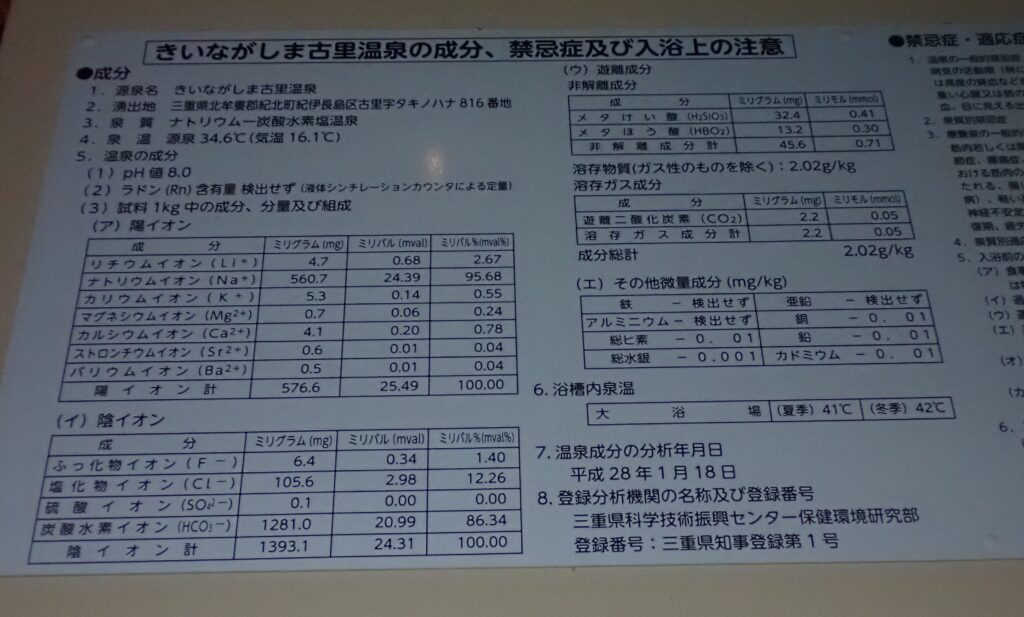 きいながしま古里温泉の成分、禁忌症及び入浴上の注意
●成分
1．源泉名 きいながしま古里温泉
2．湧出地 三重県北牟婁郡紀北町紀伊長島区古里字タキノハナ816番地
3．泉質 ナトリウムー炭酸水素塩温泉
4．泉温 源泉34.6℃(気温16.1℃)
5．温泉の成分
(1) pH値 8.0
(2) ラドン(Rn)含有量 検出せず (液体シンチレーションカウンタによる定量)
(3) 試料1kg中の成分、分量及び組成
(ア) 陽イオン
成分 ミリグラム(mg) ミリバル(mval) ミリバル%(mval%)
リチウムイオン(Li+) 4.7 0.68 2.67
ナトリウムイオン(Na+) 560.7 24.39 95.68
カリウムイオン(K+) 5.3 0.14 0.55
マグネシウムイオン(Mg2+) 0.7 0.06 0.24
カルシウムイオン(Ca2+) 4.1 0.20 0.78
ストロンチウムイオン(Sr2+) 0.6 0.01 0.04
バリウムイオン(Ba2+) 0.5 0.01 0.04
陽イオン計 576.6 25.49 100.00
(イ) 陰イオン
成分 ミリグラム(mg) ミリバル(mval) ミリバル%(mval%)
ふっ化物イオン(F−) 6.4 0.34 1.40
塩化物イオン(Cl−) 105.6 2.98 12.26
硫酸イオン(SO₄²−) 0.1 0.00 0.00
炭酸水素イオン(HCO₃−) 1281.0 20.99 86.34
陰イオン計 1393.1 24.31 100.00
(ウ) 遊離成分
非解離成分
成分 ミリグラム(mg) ミリモル(mmol)
メタけい酸(H₂SiO₃) 32.4 0.41
メタほう酸(HBO₂) 13.2 0.30
非解離成分計 45.6 0.71
溶存物質(ガス性のものを除く)：2.02g/kg
溶存ガス成分
成分 ミリグラム(mg) ミリモル(mmol)
遊離二酸化炭素(CO₂) 2.2 0.05
溶存ガス成分計 2.2 0.05
成分総計 2.02g/kg
(エ) その他微量成分(mg/kg)
鉄 − 検出せず 亜鉛 − 検出せず
アルミニウム − 検出せず 銅 − 0.01
総ヒ素 − 0.01 鉛 − 0.01
総水銀 − 0.001 カドミウム − 0.01
6．浴槽内泉温
大浴場 (夏季) 41℃ (冬季) 42℃
7．温泉成分の分析年月日
平成28年1月18日
8．登録分析機関の名称及び登録番号
三重県科学技術振興センター保健環境研究部
登録番号：三重県知事登録第1号
●禁忌症・適応症
1．温泉の一般的禁忌症
病気の活動期(特に
は高度の貧血など
重い心臓又は肺の
血、目に見える出
2．泉質別禁忌症
3．療養泉の一般的
筋肉若しくは
節症、腰痛症、
おける筋肉の
たれる、腸
病)、軽い
神経不安定
復期、疲労
4．泉質別適応
5．入浴前の
(ア) 食事
は
(イ)
(ウ)
(エ)
(オ)
(カ
6．